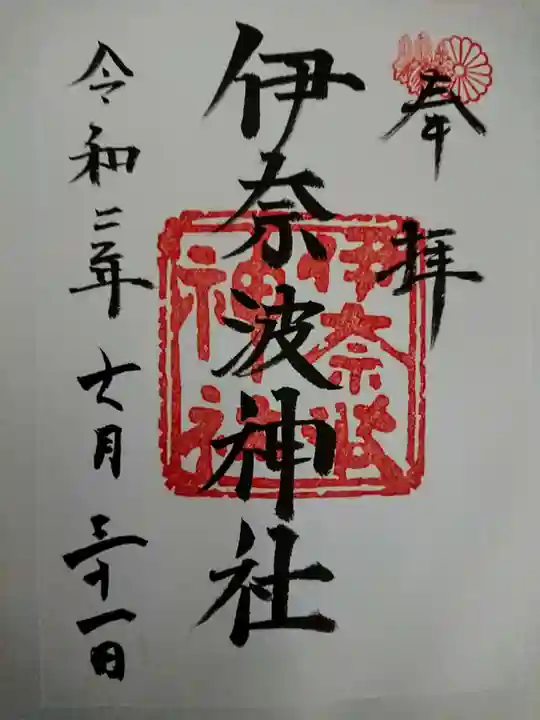 奉拝
伊奈波神社
伊奈波
神社
令和二年七月三十一日